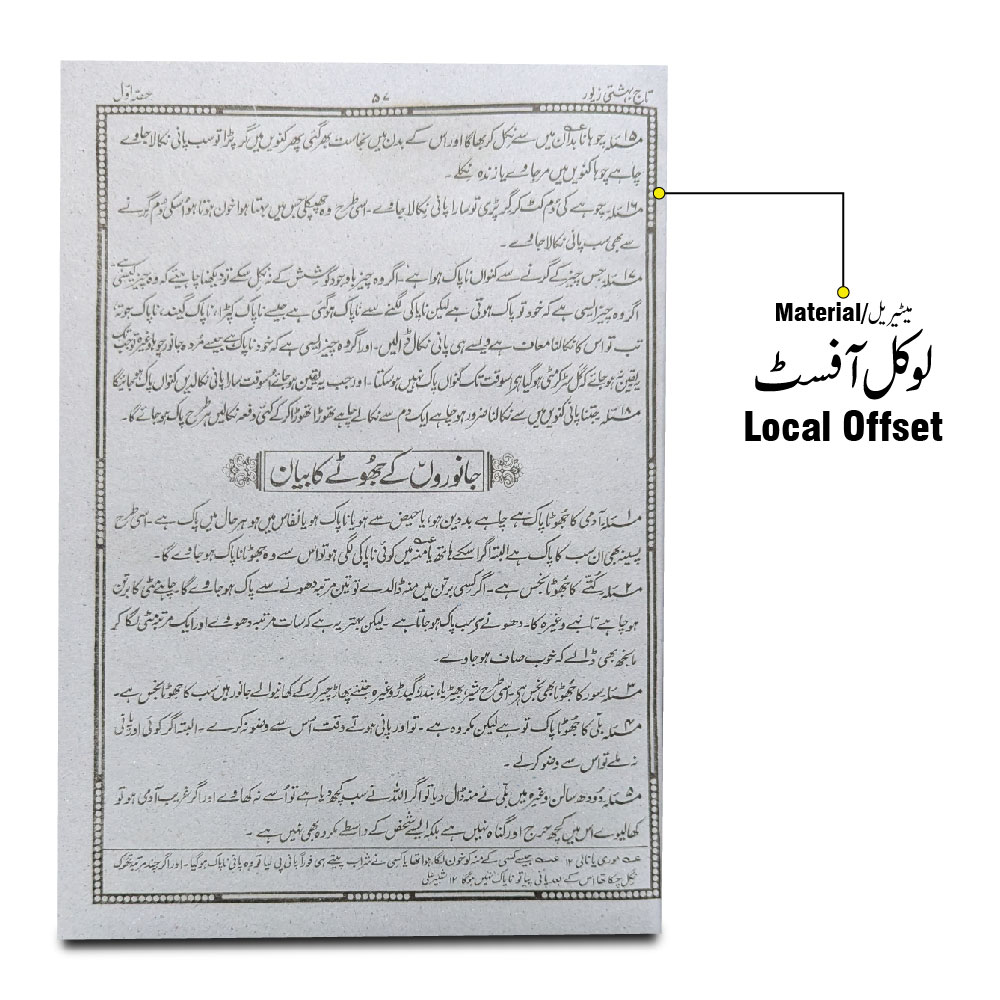 تاج بہشتی زیور ۵۷ حصہ اول
مسئلہ۱۵ چوہا نابدان میں سے نکل کر بھاگا اور اس کے بدن میں نجاست بھر گئی پھر کنویں میں گر پڑا تو سب پانی نکالا جاوے
چاہے چوہا کنویں میں مر جاوے یا زندہ نکلے۔
مسئلہ۱۶ چوہے کی دُم کٹ کر گر پڑی تو سارا پانی نکالا جاوے۔ اسی طرح وہ چھپکلی جس میں بہتا ہوا خون ہوتا ہو اُسکی دُم گرنے
سے بھی سب پانی نکالا جاوے۔
مسئلہ۱۷ جس چیز کے گرنے سے کنواں ناپاک ہوا ہے۔ اگر وہ چیز باوجود کوشش کے نہ نکل سکے تو دیکھنا چاہیئے کہ وہ چیز کیسی ہے۔
اگر وہ چیز ایسی ہے کہ خود تو پاک ہوتی ہے لیکن ناپاکی لگنے سے ناپاک ہو گئی ہے جیسے ناپاک کپڑا، ناپاک گیند، ناپاک جوتہ
تب تو اس کا نکالنا معاف ہے ویسے ہی پانی نکال ڈالیں۔ اور اگر وہ چیز ایسی ہے کہ خود ناپاک ہے جیسے مُردہ جانور چوہا وغیرہ تو جب تک
یقین نہ ہو جائے کہ گل سڑ کر مٹی ہو گیا ہے اسوقت تک کنواں پاک نہیں ہو سکتا۔ اور جب یقین ہو جائے اسوقت سارا پانی نکالدیں کنواں پاک ہو جائیگا
مسئلہ۱۸ جتنا پانی کنویں میں سے نکالنا ضرور ہو چاہے ایک دم سے نکالے چاہے تھوڑا تھوڑا کر کے کئی دفعہ نکالیں ہر طرح پاک ہو جائے گا۔
جانوروں کے جھوٹے کا بیان
مسئلہ۱ آدمی کا جھوٹا پاک ہے چاہے بددین ہو، یا حیض سے ہو یا ناپاک ہو یا نفاس میں ہو ہر حال میں پاک ہے۔ اسی طرح
پسینہ بھی ان سب کا پاک ہے البتہ اگر اسکے ہاتھ یا منہ میں کوئی ناپاکی لگی ہو تو اس سے وہ جھوٹا ناپاک ہو جاوے گا۔
مسئلہ۲ کُتّے کا جھوٹا نجس ہے۔ اگر کسی برتن میں منہ ڈالدے تو تین مرتبہ دھونے سے پاک ہو جاوے گا۔ چاہے مٹی کا برتن
ہو چاہے تانبے وغیرہ کا۔ دھونے سے سب پاک ہو جاتا ہے۔ لیکن بہتر یہ ہے کہ سات مرتبہ دھووے اور ایک مرتبہ مٹی لگا کر
مانجھ بھی ڈالے کہ خوب صاف ہو جاوے۔
مسئلہ۳ سور کا جھوٹا بھی نجس ہے۔ اسی طرح شیر، بھیڑیا، بندر، گیدڑ وغیرہ جتنے پھاڑ چیر کر کے کھانیوالے جانور ہیں سب کا جھوٹا نجس ہے۔
مسئلہ۴ بلّی کا جھوٹا پاک تو ہے لیکن مکروہ ہے۔ تو اور پانی ہوتے وقت اُس سے وضو نہ کرے۔ البتہ اگر کوئی اور پانی
نہ ملے تو اس سے وضو کرلے۔
مسئلہ۵ دُودھ سالن وغیرہ میں بلّی نے منہ ڈال دیا تو اگر اللہ نے سب کچھ دیا ہے تو اُسے نہ کھاوے اور اگر غریب آدمی ہو تو
کھالیوے اس میں کچھ حرج اور گناہ نہیں ہے بلکہ ایسے شخص کے واسطے مکروہ بھی نہیں ہے۔
عہ موری یا نالی ۱۲ عہ جیسے کسی کے منہ کو خون لگا ہوا تھا یا کسی نے شراب پیتے ہی فوراً پانی پی لیا تو وہ پانی ناپاک ہو گیا۔ اور اگر چند مرتبہ تھوک
نگل چکا تھا اس کے بعد پانی پیا تو ناپاک نہیں ہوگا ۱۲ شبیر علی
Material/میٹیریل
لوکل آفسٹ
Local Offset